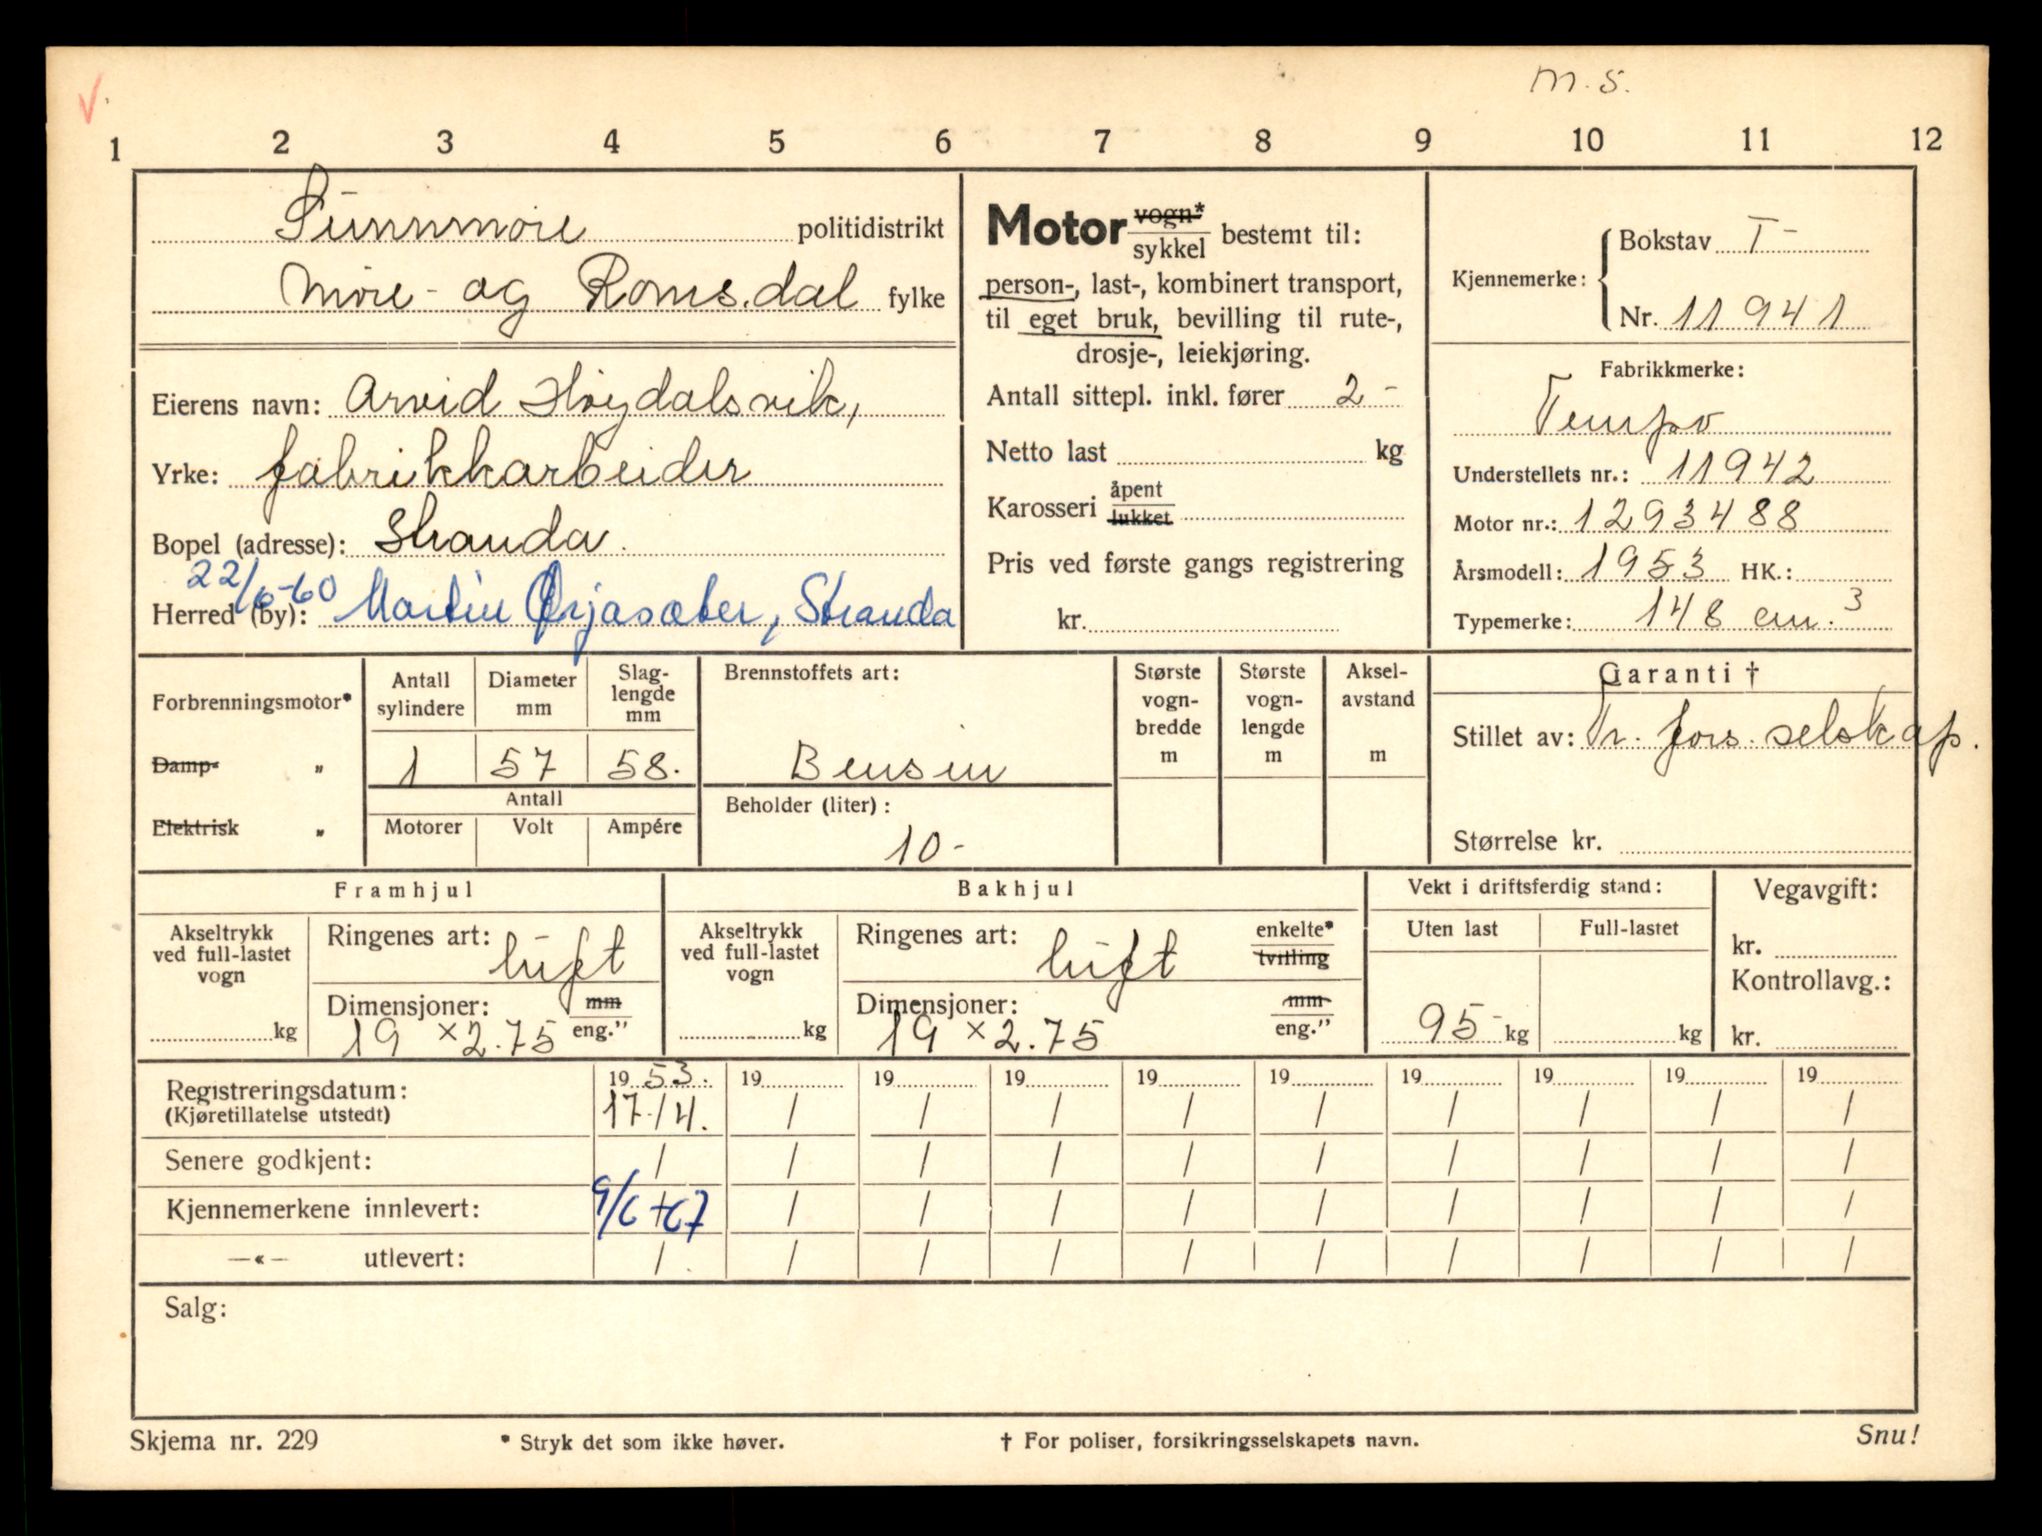 m.s.
1 2 3 4 5 6 7 8 9 10 11 12
Sunnmøre politidistrikt
Møre- og Romsdal fylke
Eierens navn: Arvid Høydalsvik,
Yrke: fabrikkarbeider
Bopel (adresse): Stranda.
22/6-60
Herred (by): Martin Ørjasæter, Stranda
Motor vogn* sykkel bestemt til:
person-, last-, kombinert transport,
til eget bruk, bevilling til rute-,
drosje-, leiekjøring.
Antall sittepl. inkl. fører 2-
Netto last kg
Karosseri åpent lukket
Pris ved første gangs registrering
kr.
Kjennemerke: Bokstav T-
Nr. 11941
Fabrikkmerke:
Tempo
Understellets nr.: 11942
Motor nr.: 1293488
Årsmodell: 1953 HK.:
Typemerke: 148 cm.3
Forbrenningsmotor*
Damp- "
Elektrisk "
Antall sylindere
Diameter mm
Slag-lengde mm
1 57 58.
Antall
Motorer Volt Ampére
Brennstoffets art:
Bensin
Beholder (liter):
10-
Største vogn-bredde m
Største vogn-lengde m
Aksel-avstand m
Garanti †
Stillet av: Tr. fors. selskap.
Størrelse kr.
Framhjul
Akseltrykk ved full-lastet vogn
kg
Ringenes art: luft
Dimensjoner: mm
19 × 2.75 eng."
Bakhjul
Akseltrykk ved full-lastet vogn
kg
Ringenes art: luft enkelte* tvilling
Dimensjoner: mm
19 × 2.75 eng."
Vekt i driftsferdig stand:
Uten last Full-lastet
95- kg kg
Vegavgift:
kr.
Kontrollavg.:
kr.
Registreringsdatum: 19 53. 19 19 19 19 19 19 19 19 19
(Kjøretillatelse utstedt) 17./4. / / / / / / / / /
Senere godkjent: / / / / / / / / / /
Kjennemerkene innlevert: 9/6-67 / / / / / / / / /
—«— utlevert: / / / / / / / / / /
Salg:
Skjema nr. 229 * Stryk det som ikke høver. † For poliser, forsikringsselskapets navn. Snu!